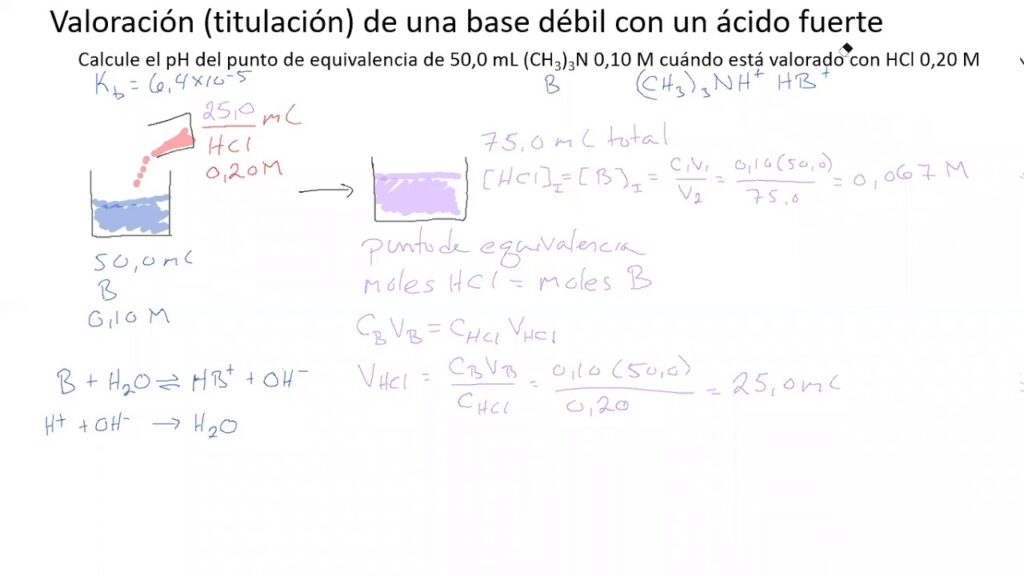 Valoración (titulación) de una base débil con un ácido fuerte
Calcule el pH del punto de equivalencia de 50,0 mL (CH₃)₃N 0,10 M cuándo está valorado con HCl 0,20 M
K_b = 6,4×10⁻⁵
B
(CH₃)₃NH⁺ HB⁺
25,0 mL
HCl
0,20M
50,0mL
B
0,10 M
75,0 mL total
[HCl]_I = [B]_I = C₁V₁/V₂ = 0,10(50,0)/75,0 = 0,067 M
punto de equivalencia
moles HCl = moles B
C_B V_B = C_HCl V_HCl
V_HCl = C_B V_B/C_HCl = 0,10(50,0)/0,20 = 25,0mL
B + H₂O ⇌ HB⁺ + OH⁻
H⁺ + OH⁻ → H₂O